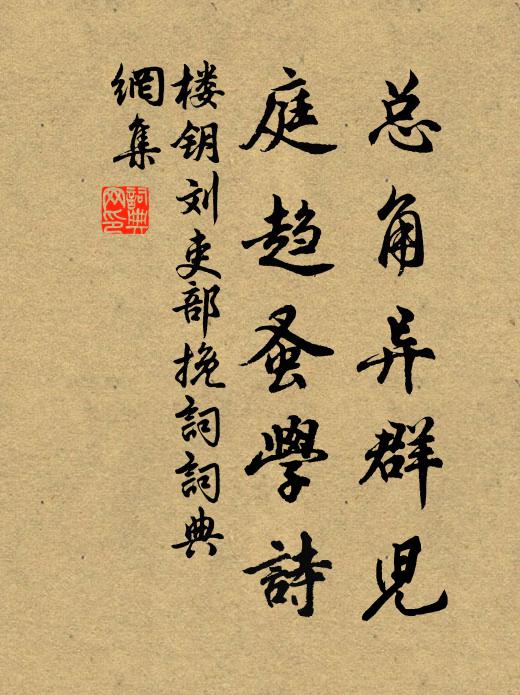 总角异群児
庭趋蚤學詩
楼钥刘吏部挽詞詞典
網集
詞典
网印